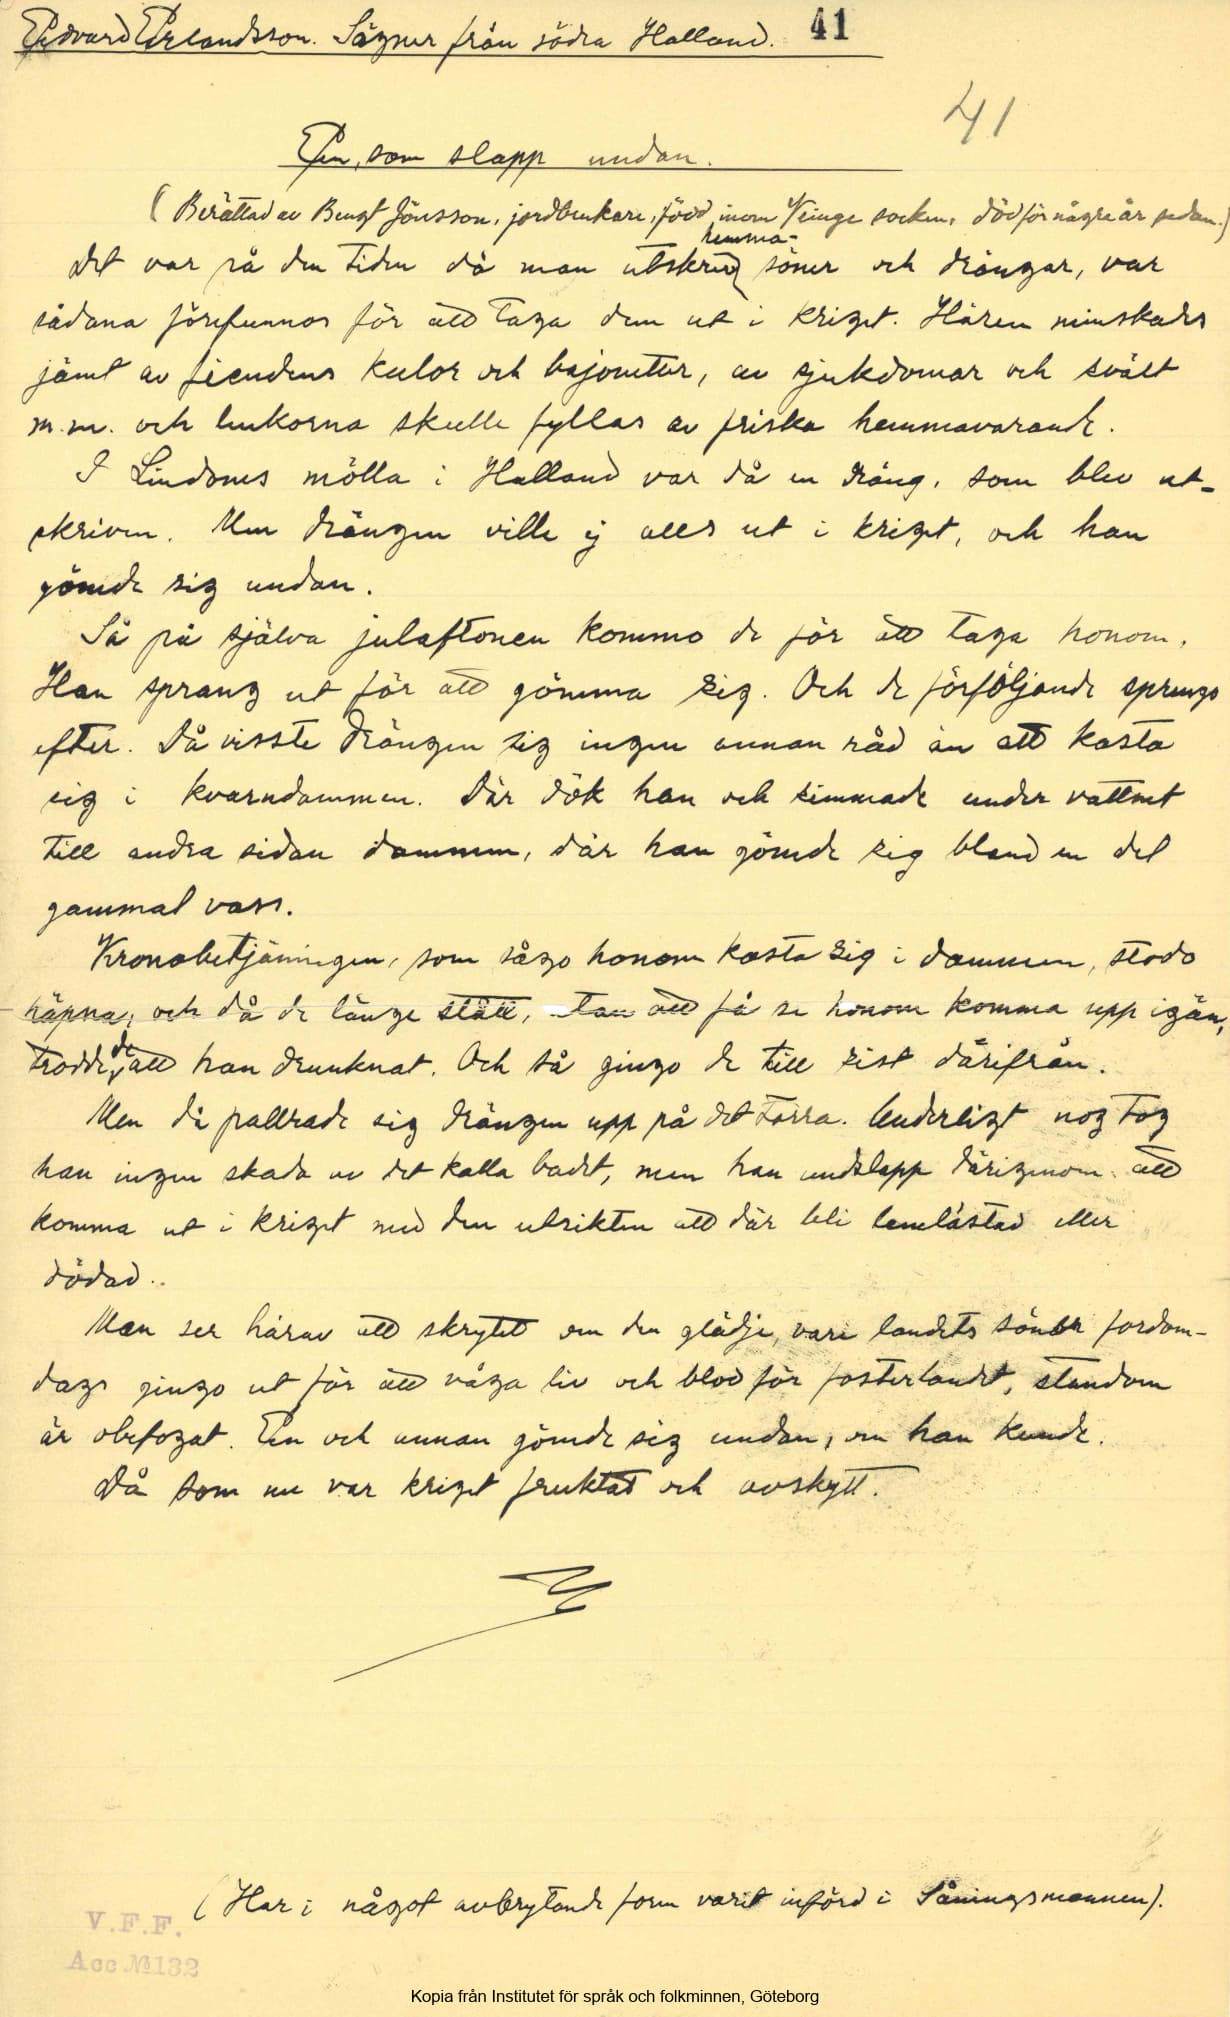 Edvard Erlandsson. Sägner från södra Halland. 41
41
En, som slapp undan.
(Berättad av Bengt Jönsson, jordbrukare, född inom Veinge socken, död för några år sedan.)
hemma-
Det var på den tiden då man utskrev söner och drängar, var
sådana förefunnos för att taga dem ut i kriget. Hären minskades
jämt av fiendens kulor och bajonetter, av sjukdomar och svält
m.m. och luckorna skulle fyllas av friska hemmavarande.
I Lindomes mölla i Halland var då en dräng, som blev ut-
skriven. Men drängen ville ej alls ut i kriget, och han
gömde sig undan.
Så på själva julaftonen kommo de för att taga honom.
Han sprang ut för att gömma sig. Och de förföljande sprungo
efter. Då visste drängen sig ingen annan råd än att kasta
sig i kvarndammen. Där dök han och simmade under vattnet
till andra sidan dammen, där han gömde sig bland en del
gammal vass.
Kronobetjäningen, som sågo honom kasta sig i dammen, stodo
häpna, och då de länge stått, utan att få se honom komma upp igän,
trodde de att han drunknat. Och så gingo de till sist därifrån.
Men då pallrade sig drängen upp på det torra. Underligt nog tog
han ingen skada av det kalla badet, men han undslapp därigenom att
komma ut i kriget med den utsikten att där bli lemlästad eller
dödad.
Man ser härav att skrytet om den glädje, vari landets söner fordom-
dags gingo ut för att våga liv och blod för fosterlandet, stundom
är obefogat. En och annan gömde sig undan, om han kunde.
Då som nu var kriget fruktat och avskytt.
(Har i något avbrytande form varit införd i Såningsmannen).
V.F.F.
Acc № 132
Kopia från Institutet för språk och folkminnen, Göteborg